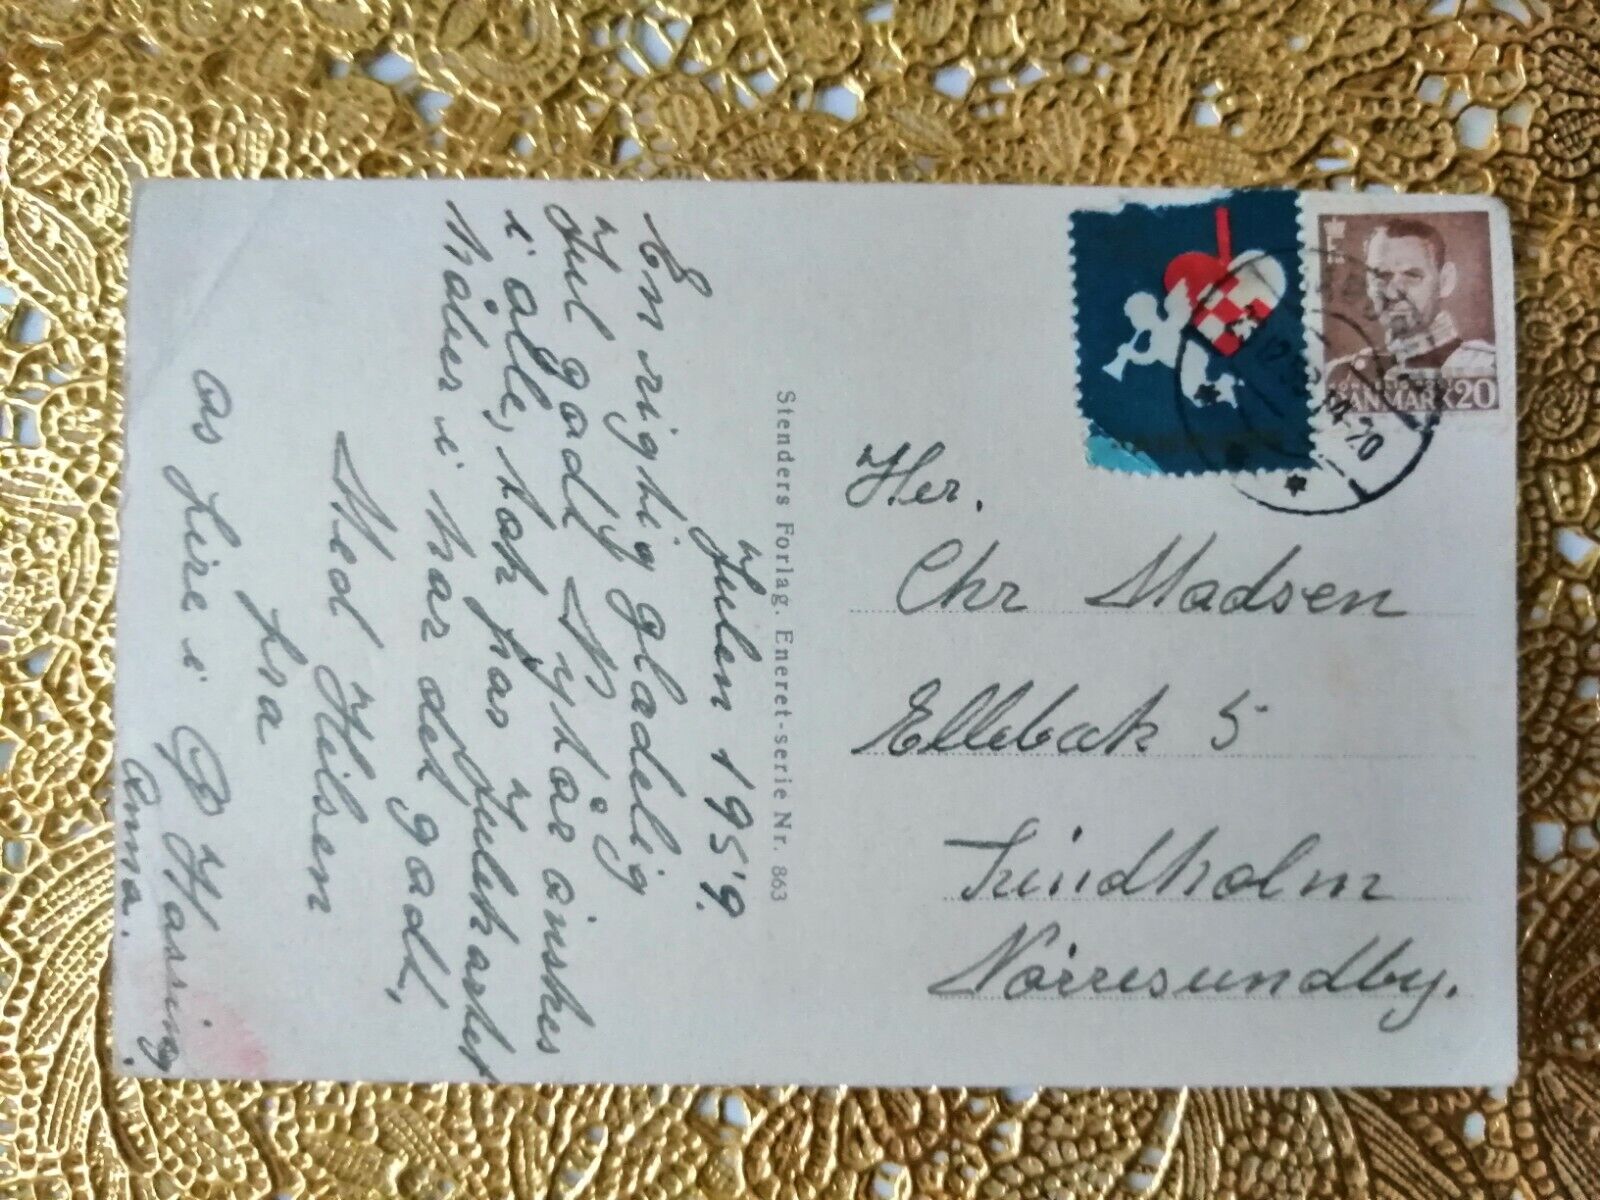 Julen 1959.
En rigtig gladelig
Jul godt Nytår ønskes
i alle, tak for Julekortet
håber i har det godt,
Med Hilsen
fra
os fire i P Hassing
Anna.
Stenders Forlag. Eneret-serie Nr. 863
DANMARK 20
14-20
Her.
Chr Madsen
Ellebæk 5
Lindholm
Nørresundby.